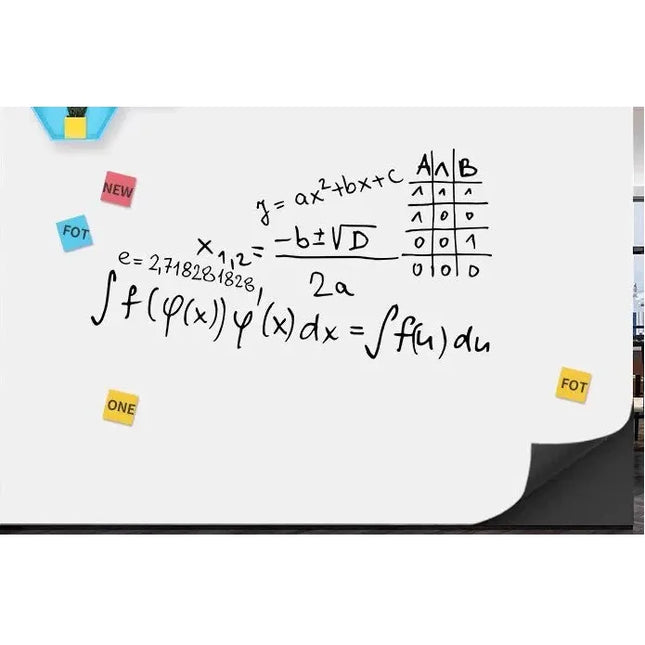 NEW
FOT
y = ax²+bx+c
A|∧|B
1 1 1
1 0 0
0 0 1
0 0 0
x₁,₂ = (-b±√D)/2a
e = 2,718281828,
∫f(φ(x))φ'(x)dx = ∫f(u)du
ONE
FOT